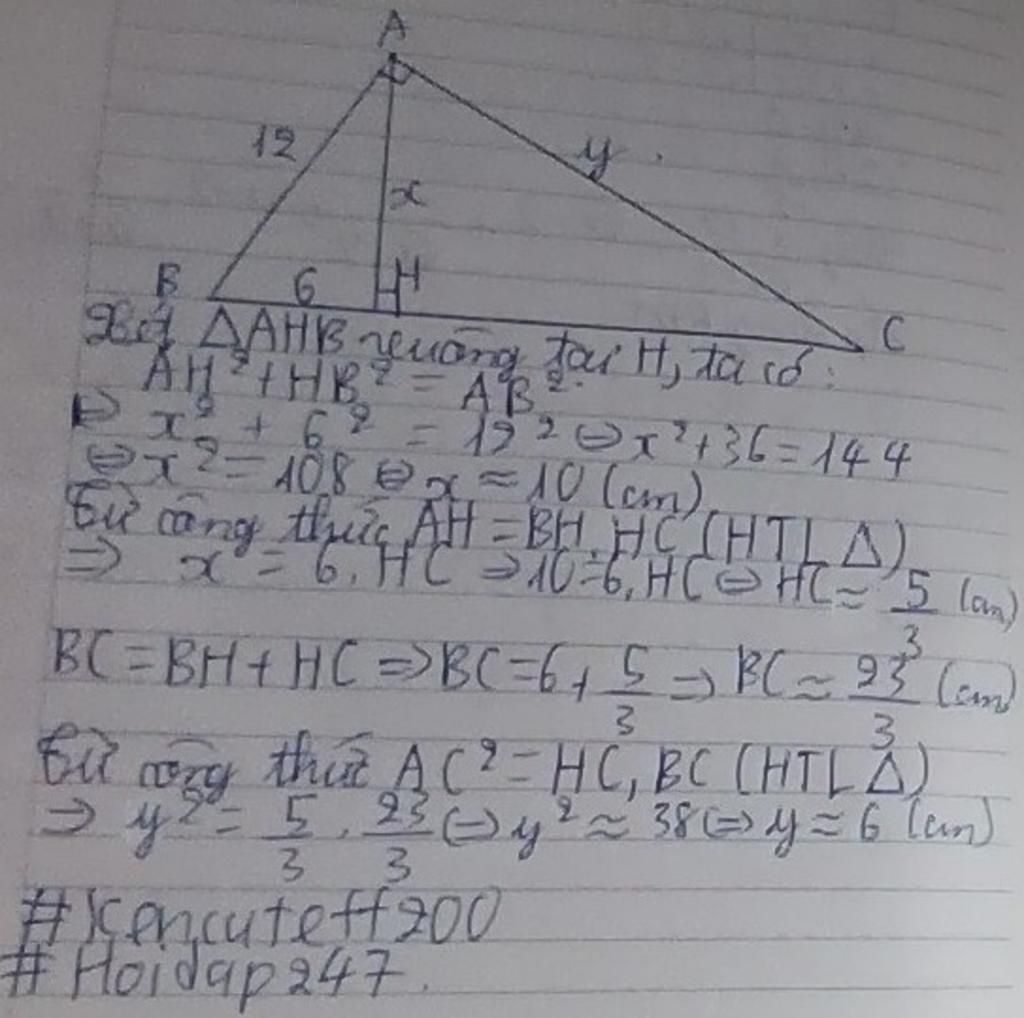 A
12
y
x
B
6
H
C
Xét ΔAHB vuông tại H, ta có:
AH² + HB² = AB²
⇔ x² + 6² = 12² ⇔ x² + 36 = 144
⇔ x² = 108 ⇔ x ≈ 10 (cm)
Từ công thức AH = BH.HC (HTL Δ)
⇒ x = 6.HC ⇒ 10 = 6.HC ⇔ HC ≈ 5/3 (cm)
BC = BH + HC ⇒ BC = 6 + 5/3 ⇒ BC ≈ 23/3 (cm)
Từ công thức AC² = HC.BC (HTL Δ)
⇒ y² = 5/3 . 23/3 ⇔ y² ≈ 38 ⇔ y ≈ 6 (cm)
#Kencuteff200
#Hoidap247.